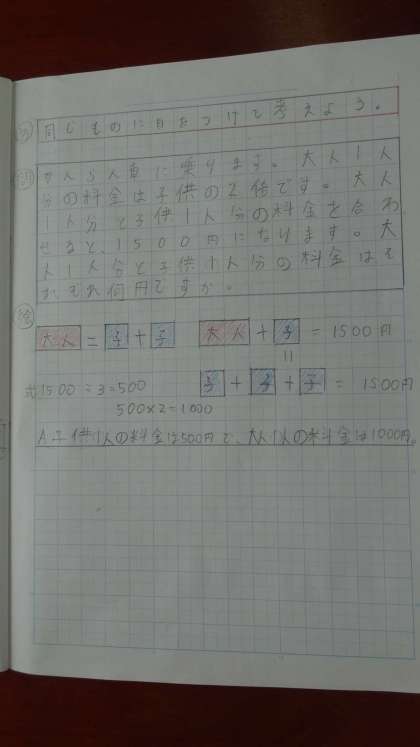 め 同じものに目をつけて考えよう。
問 かんらん車に乗ります。大人1人
分の料金は子供の2倍です。大人
1人分と子供1人分の料金を合わ
せると、1500円になります。大
人1人分と子供1人分の料金はそ
れぞれ何円ですか。
絵
大人 = 子 + 子 大人 + 子 = 1500円
=
式 1500÷3=500 子 + 子 + 子 = 1500円
500×2=1000
A 子供1人の料金は500円で、大人1人の料金は1000円。